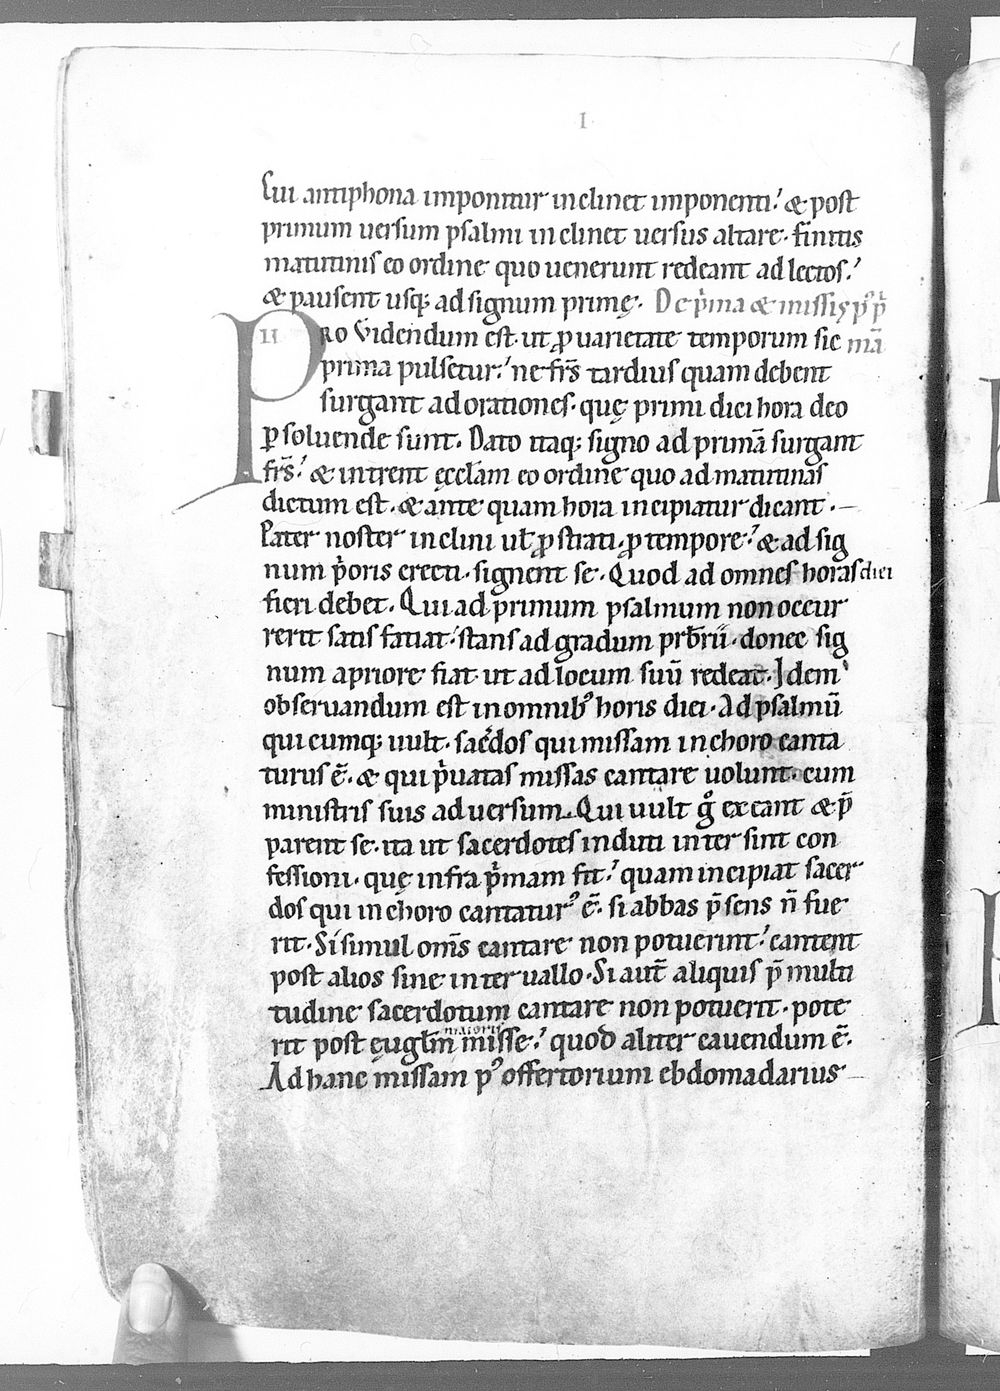 I
Cui antiphona imponitur inclinet imponenti. & post
primum uersum psalmi inclinet uersus altare. finitis
matutinis eo ordine quo uenerunt redeant ad lectos.
& pausent usq; ad signum primę. De p'ma & missis p' p'
II PRo Videndum est. ut ꝓ uarietate temporum sic mā
prima pulsetur. ne fr̄s tardius quam debent
surgant ad orationes. quę primi diei hora deo
ꝑsoluende sunt. Dato itaq; signo ad primā surgant
fr̄s. & intrent ęccl̄am eo ordine quo ad matutinas
dictum est. & ante quam hora incipiatur dicant.
Pater noster inclini ul̄ ꝓstrati. ꝓ tempore. & ad sig
num p'oris erecti. signent se. Quod ad omnes horas diei
fieri debet. Qui ad primum psalmum non occur
rerit satis faciat. stans ad gradum prb̄rii. donec sig
num apriore fiat. ut ad locum suū redeat. Idem
obseruandum est in omnib' horis diei. Ad psalmū
quicumq; uult. sac̄dos qui missam in choro canta
turus ē. & qui p'uatas missas cantare uolunt. cum
ministris suis ad uersum. Qui uult gͦ exeant & p̄
parent se. ita ut sacerdotes induti inter sint con
fessioni. quę infra p'mam fit. quam incipiat sacer
dos qui in choro cantatur' ē. si abbas p̄sens n̄ fue
rit. Si simul om̄s cantare non potuerint. cantent
post alios sine interuallo. Si aut̄ aliquis p̄ multi
tudine sacerdotum cantare non potuerit. pote
rit post ęuglm̄ maioris missę. quod aliter cauendum ē.
Ad hanc missam p' offertorium ebdomadarius